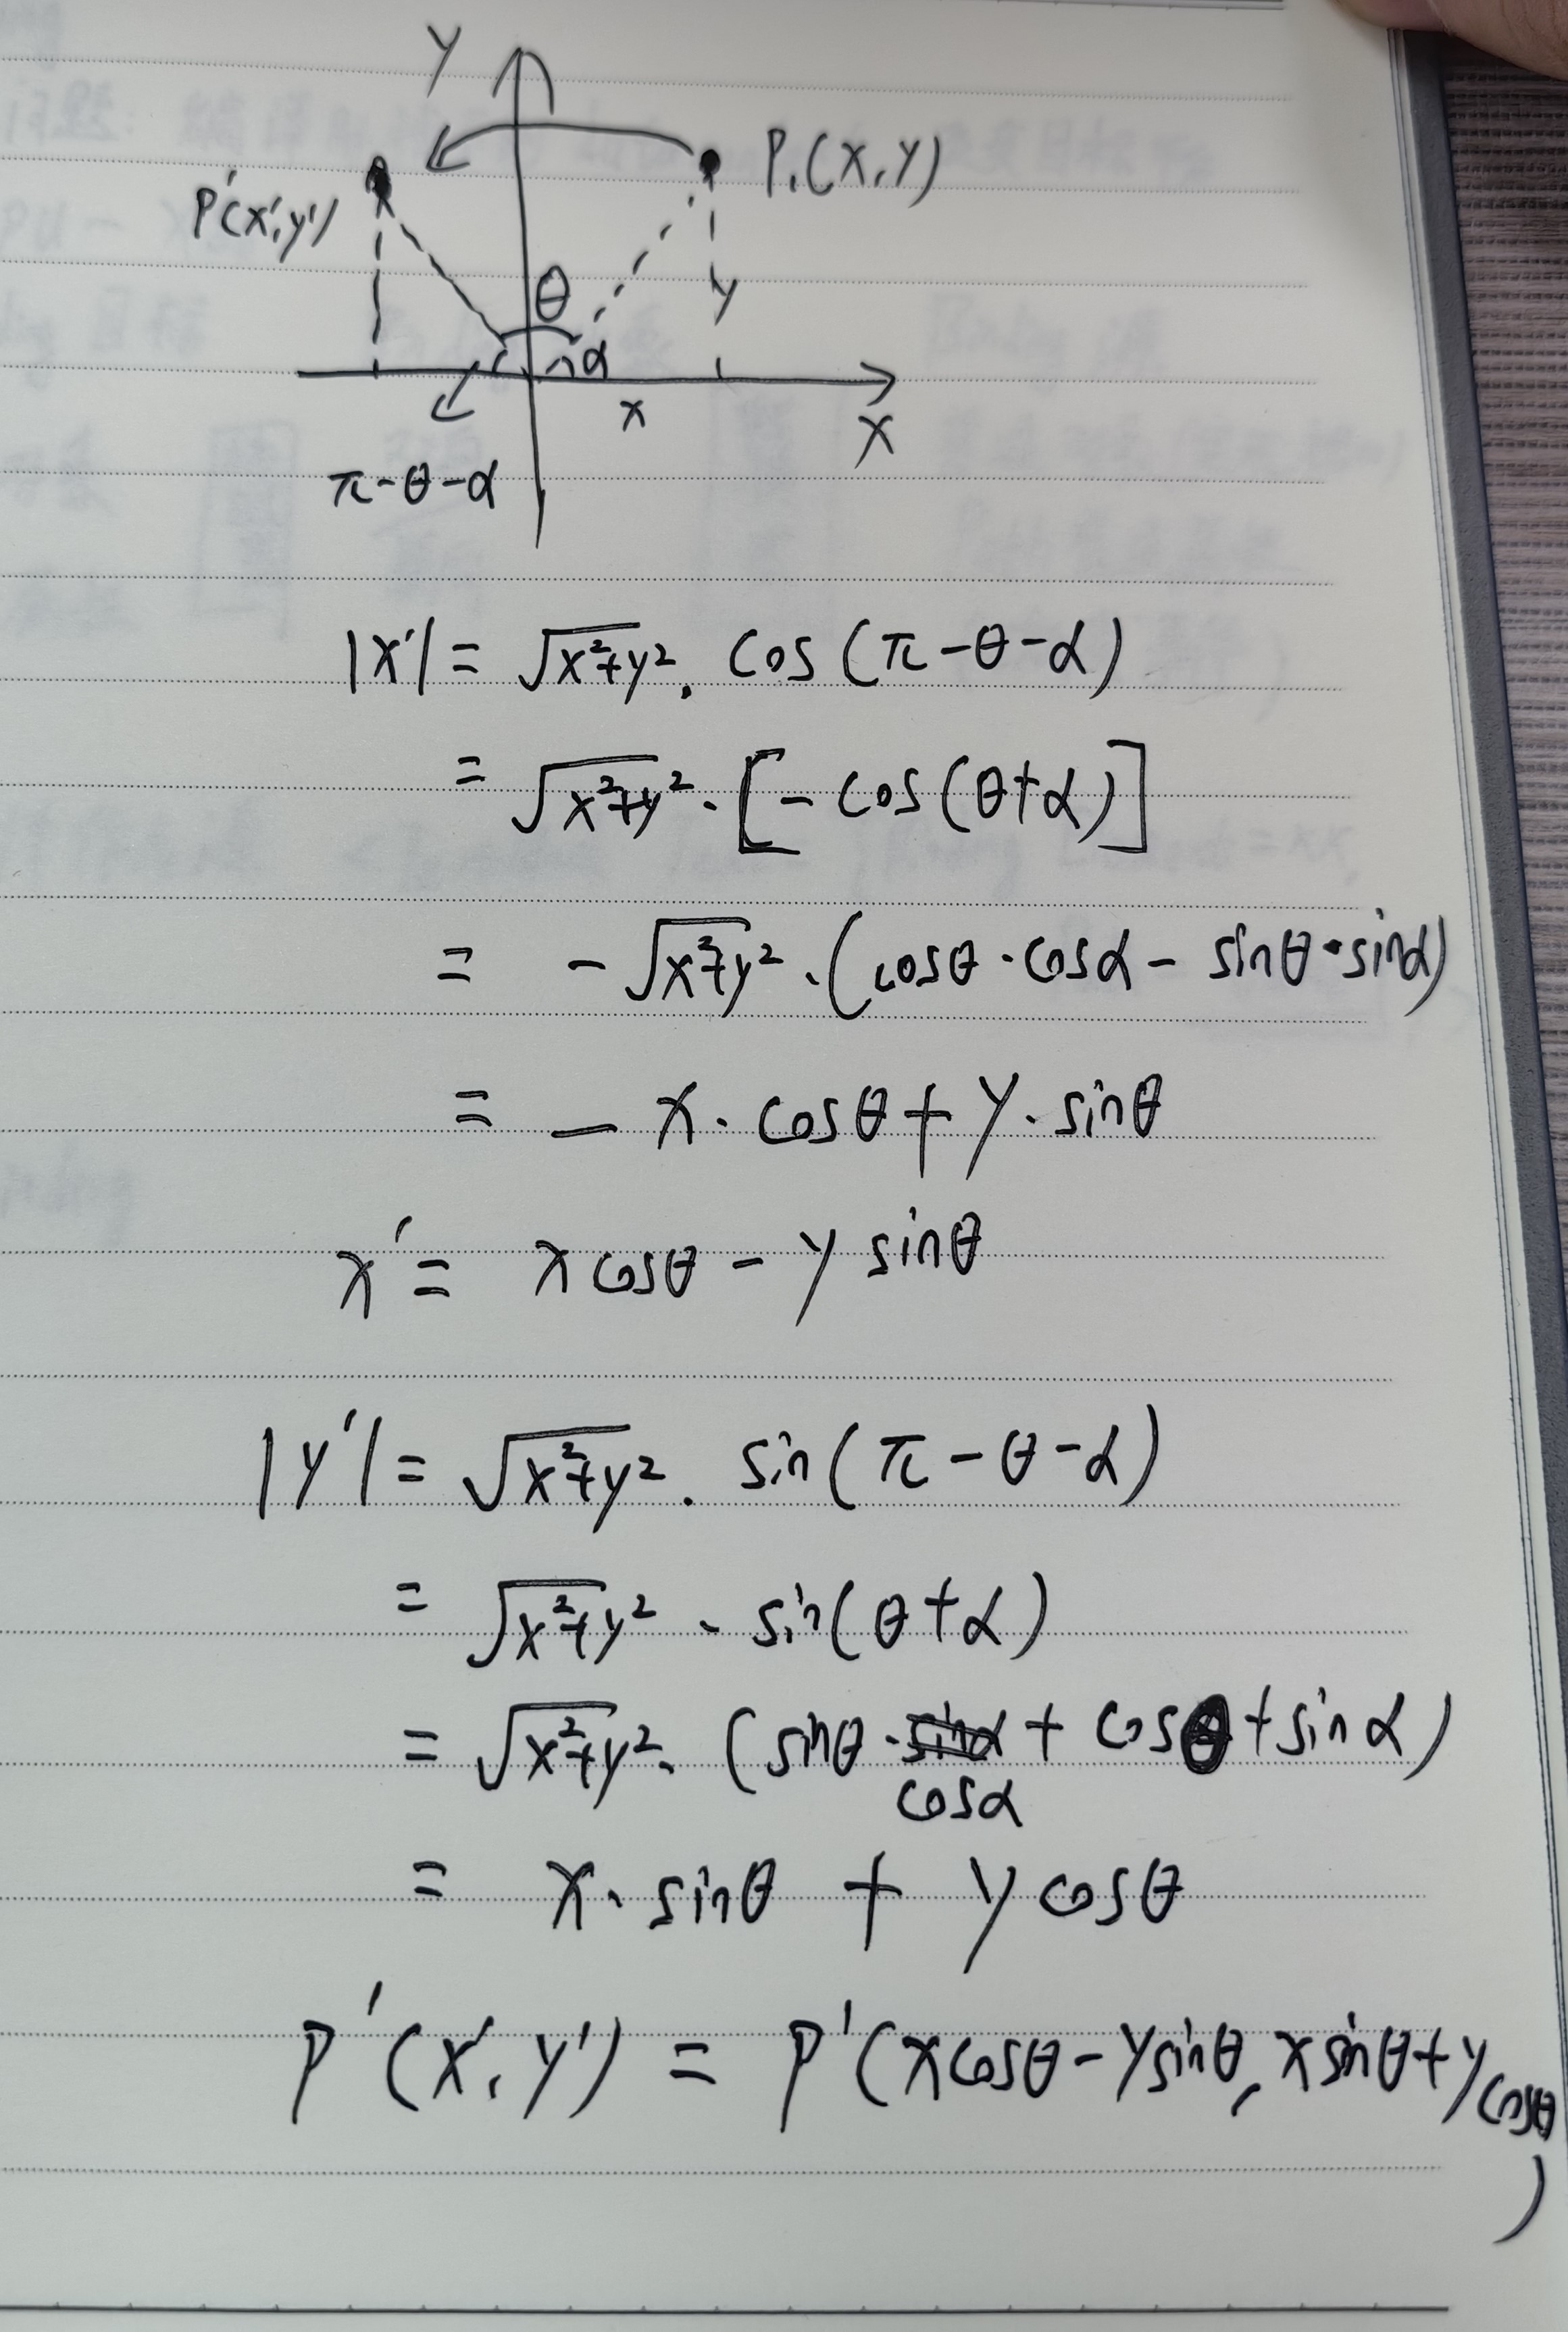 Y
P.(x,y)
P'(x',y')
θ
y
α
x
X
π-θ-α
|x'| = √x²+y². cos(π-θ-α)
= √x²+y²·[-cos(θ+α)]
= -√x²+y²·(cosθ·cosα - sinθ·sinα)
= -x·cosθ+y·sinθ
x' = xcosθ - y sinθ
|y'| = √x²+y². sin(π-θ-α)
= √x²+y²·sin(θ+α)
= √x²+y²·(sinθ·sinα + cosθ+sinα)
cosα
= x·sinθ + ycosθ
P'(x',y') = P'(xcosθ-ysinθ, xsinθ+ycosθ
)